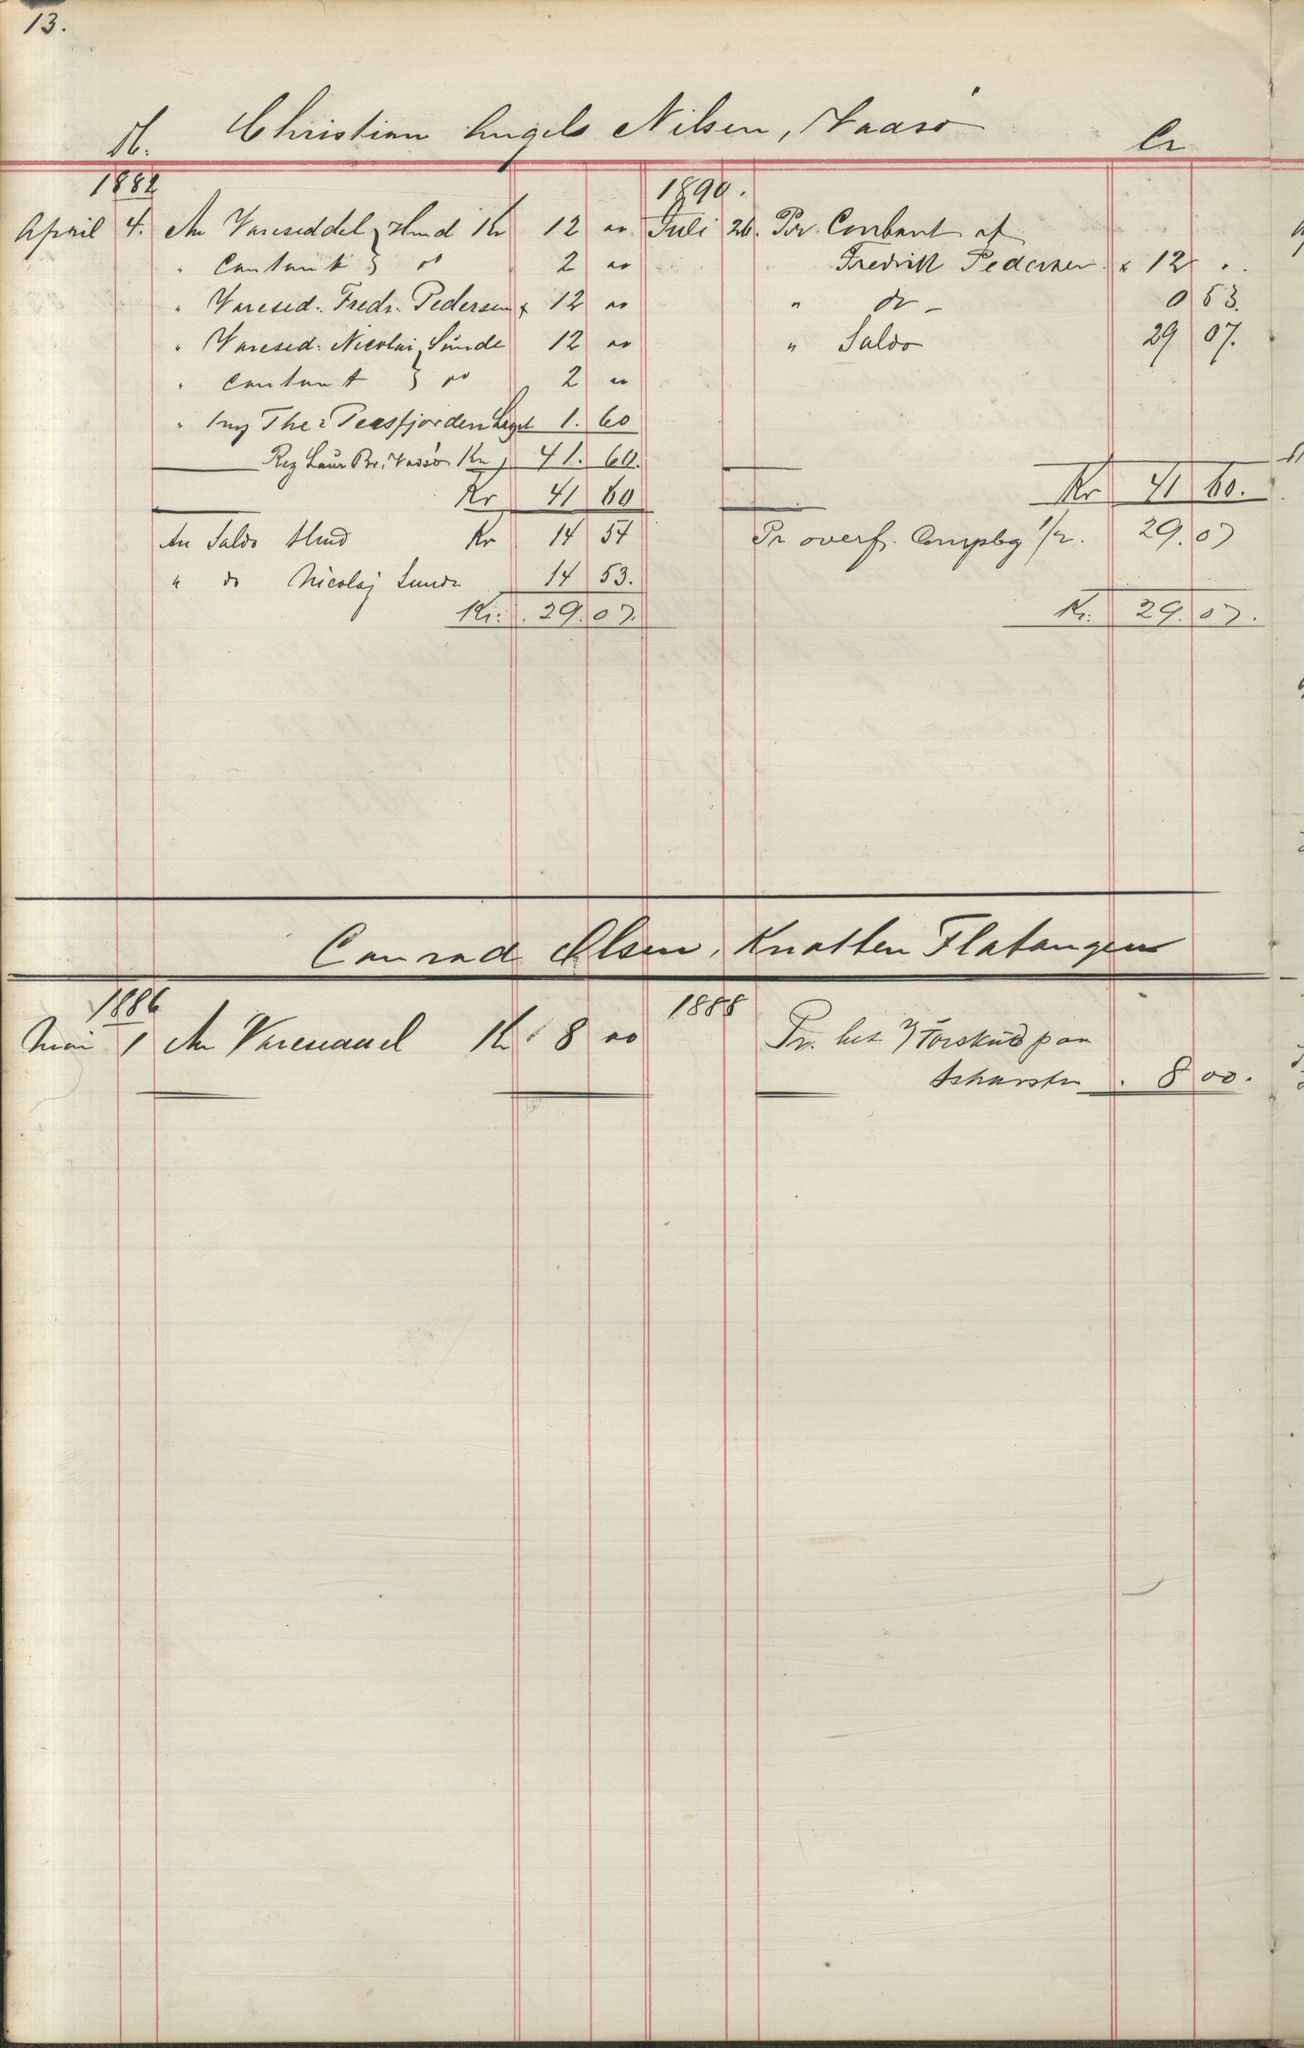 13.
Dt. Christian Engels Nilsen, Vadsø Cr
1882
April 4. An Vareseddel Hmd Kr 12 00
" Contant " 2 00
" Varesed. Fredr. Pedersen x 12 00
" Varesed. Nicolai Sunde 12 00
" Contant " 2 00
" 1 mg The i Persfjorden 1. 60
Reg Laur Br. Vadsø Kr 41. 60.
Kr 41 60
An Saldo Hmd Kr 14 54
" do Nicolaj Sunde 14 53.
Kr. 29. 07.
1890.
Juli 26. Pr Contant af
Fredrik Pedersen x 12 "
" do - 0 53.
" Saldo 29 07.
Kr 41 60.
Pr overf. Compbg 1/2. 29. 07
Kr. 29. 07.
Conrad Olsen, Knatten Flatangen
1886
Mai 1 An Vareseddel Kr 8 00
1888
Pr. Torskud paa
8 00.